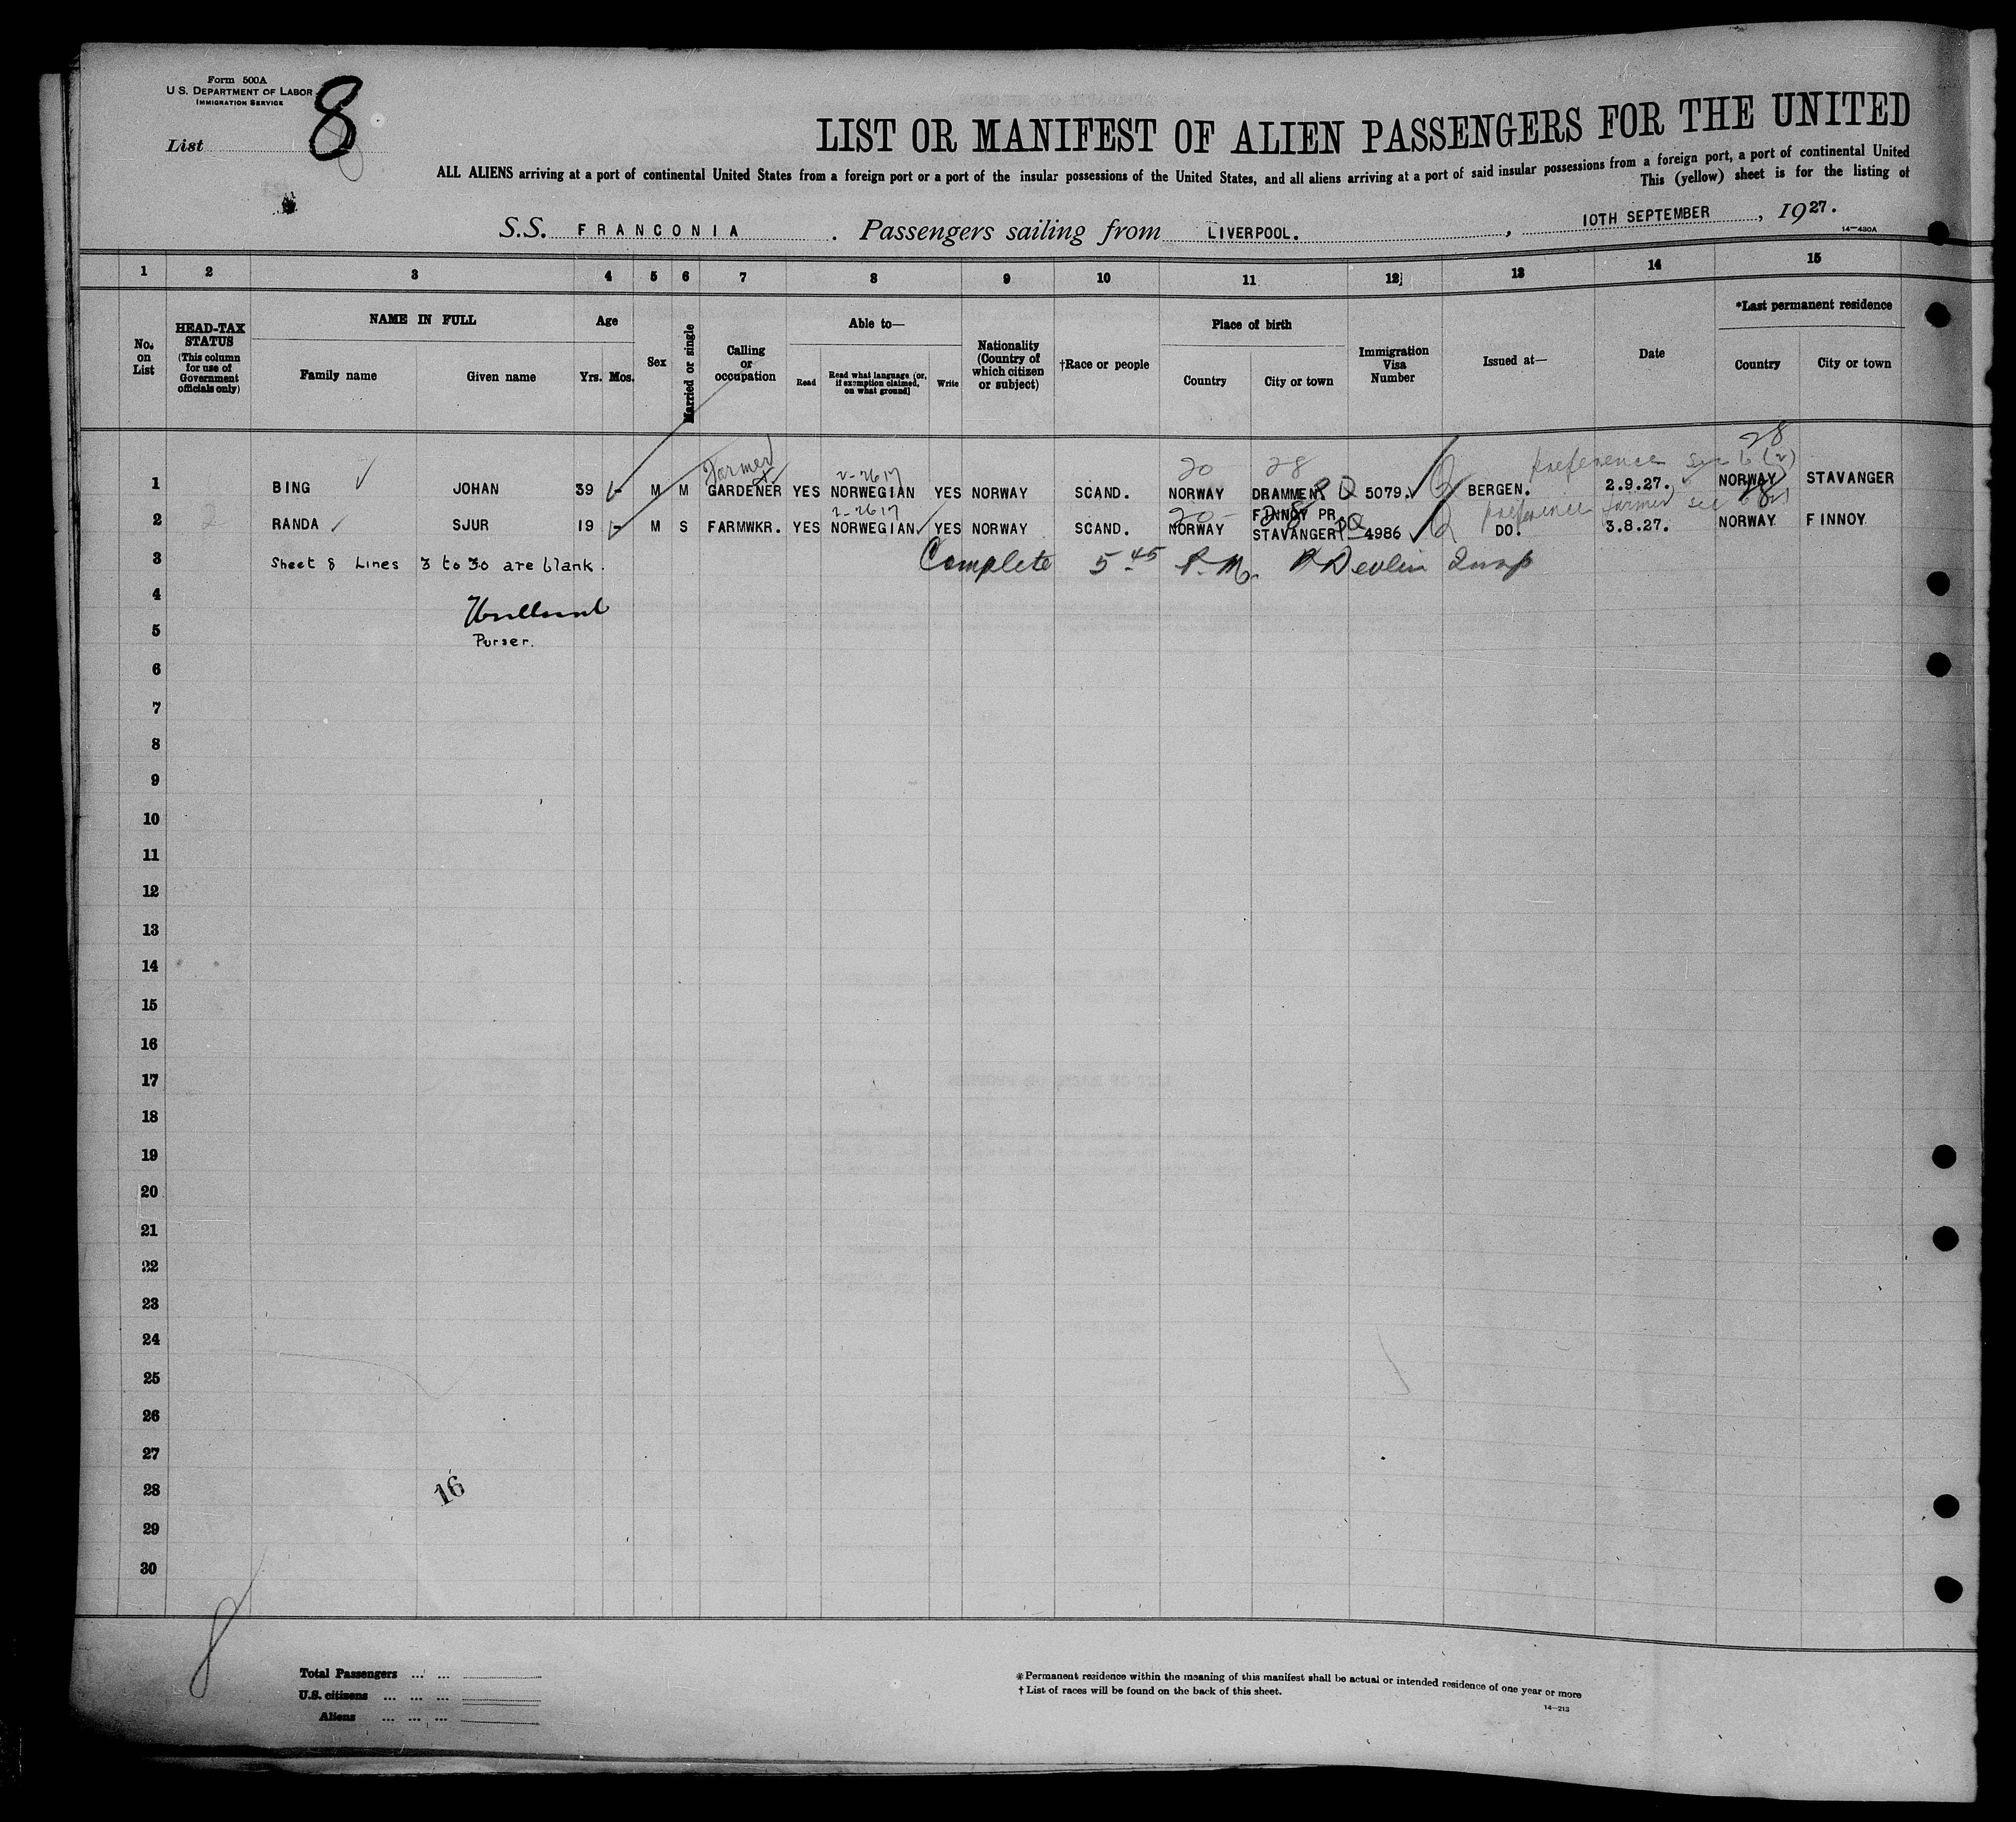 Form 500A
U S. DEPARTMENT OF LABOR
IMMIGRATION SERVICE
List 8
LIST OR MANIFEST OF ALIEN PASSENGERS FOR THE UNITED
ALL ALIENS arriving at a port of continental United States from a foreign port or a port of the insular possessions of the United States, and all aliens arriving at a port of said insular possessions from a foreign port, a port of continental United
This (yellow) sheet is for the listing of
S.S. FRANCONIA . Passengers sailing from LIVERPOOL. , 10TH SEPTEMBER , 1927.
14—430A
1 2 3 4 5 6 7 8 9 10 11 12 13 14 15
No. on List
HEAD-TAX STATUS (This column for use of Government officials only)
NAME IN FULL
Family name
Given name
Age
Yrs. Mos.
Sex
Married or single
Calling or occupation
Able to—
Read
Read what language [or, if exemption claimed, on what ground]
Write
Nationality (Country of which citizen or subject)
†Race or people
Place of birth
Country
City or town
Immigration Visa Number
Issued at—
Date
*Last permanent residence
Country
City or town
Farmer 2-2617 20 28 preference sec 6 (2) 28
1 BING JOHAN 39 M M GARDENER YES NORWEGIAN YES NORWAY SCAND. NORWAY DRAMMEN. PQ 5079. BERGEN. 2.9.27. NORWAY STAVANGER
2-2617 20 28 preference farmer sec
2 RANDA SJUR 19 M S FARMWKR. YES NORWEGIAN YES NORWAY SCAND. NORWAY FINNOY PR. STAVANGER PQ 4986 DO. 3.8.27. NORWAY FINNOY
3 Sheet 8 Lines 3 to 30 are blank. Complete 5 45 P.M. Devlin Insp
4
5 Purser.
6
7
8
9
10
11
12
13
14
15
16
17
18
19
20
21
22
23
24
25
26
27
28 16
29
30
8
Total Passengers ... ...
U.S. citizens ... ... ...
Aliens ... ... ...
*Permanent residence within the meaning of this manifest shall be actual or intended residence of one year or more
† List of races will be found on the back of this sheet.
14—213